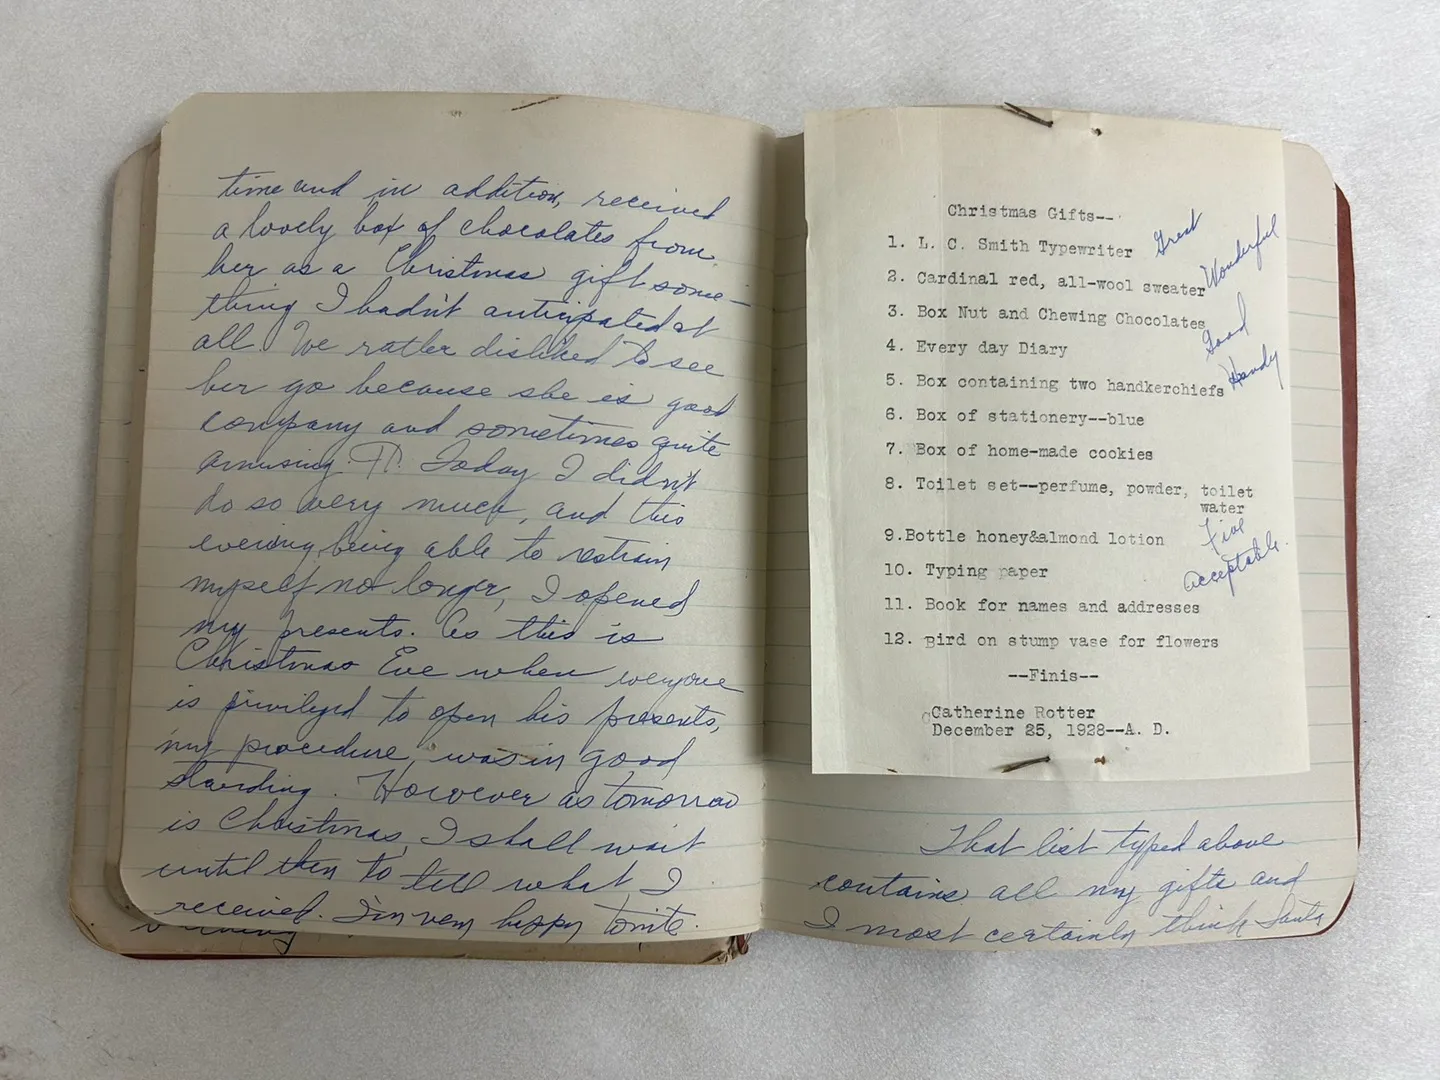 time and in addition, received
a lovely box of chocolates from
her as a Christmas gift some-
thing I hadn't anticipated at
all. We rather disliked to see
her go because she is good
company and sometimes quite
amusing. Today I didn't
do so very much, and this
evening being able to restrain
myself no longer, I opened
my presents. As this is
Christmas Eve when everyone
is privileged to open his presents,
my procedure, was in good
standing. However as tomorrow
is Christmas, I shall wait
until then to tell what I
received. I'm very happy tonite.
Christmas Gifts--
1. L. C. Smith Typewriter Great
2. Cardinal red, all-wool sweater Wonderful
3. Box Nut and Chewing Chocolates Good
4. Every day Diary
5. Box containing two handkerchiefs Handy
6. Box of stationery--blue
7. Box of home-made cookies
8. Toilet set--perfume, powder, toilet
water
9.Bottle honey&almond lotion Fine
10. Typing paper acceptable.
11. Book for names and addresses
12. Bird on stump vase for flowers
--Finis--
Catherine Rotter
December 25, 1928--A. D.
That list typed above
contains all my gifts and
I most certainly think Santa